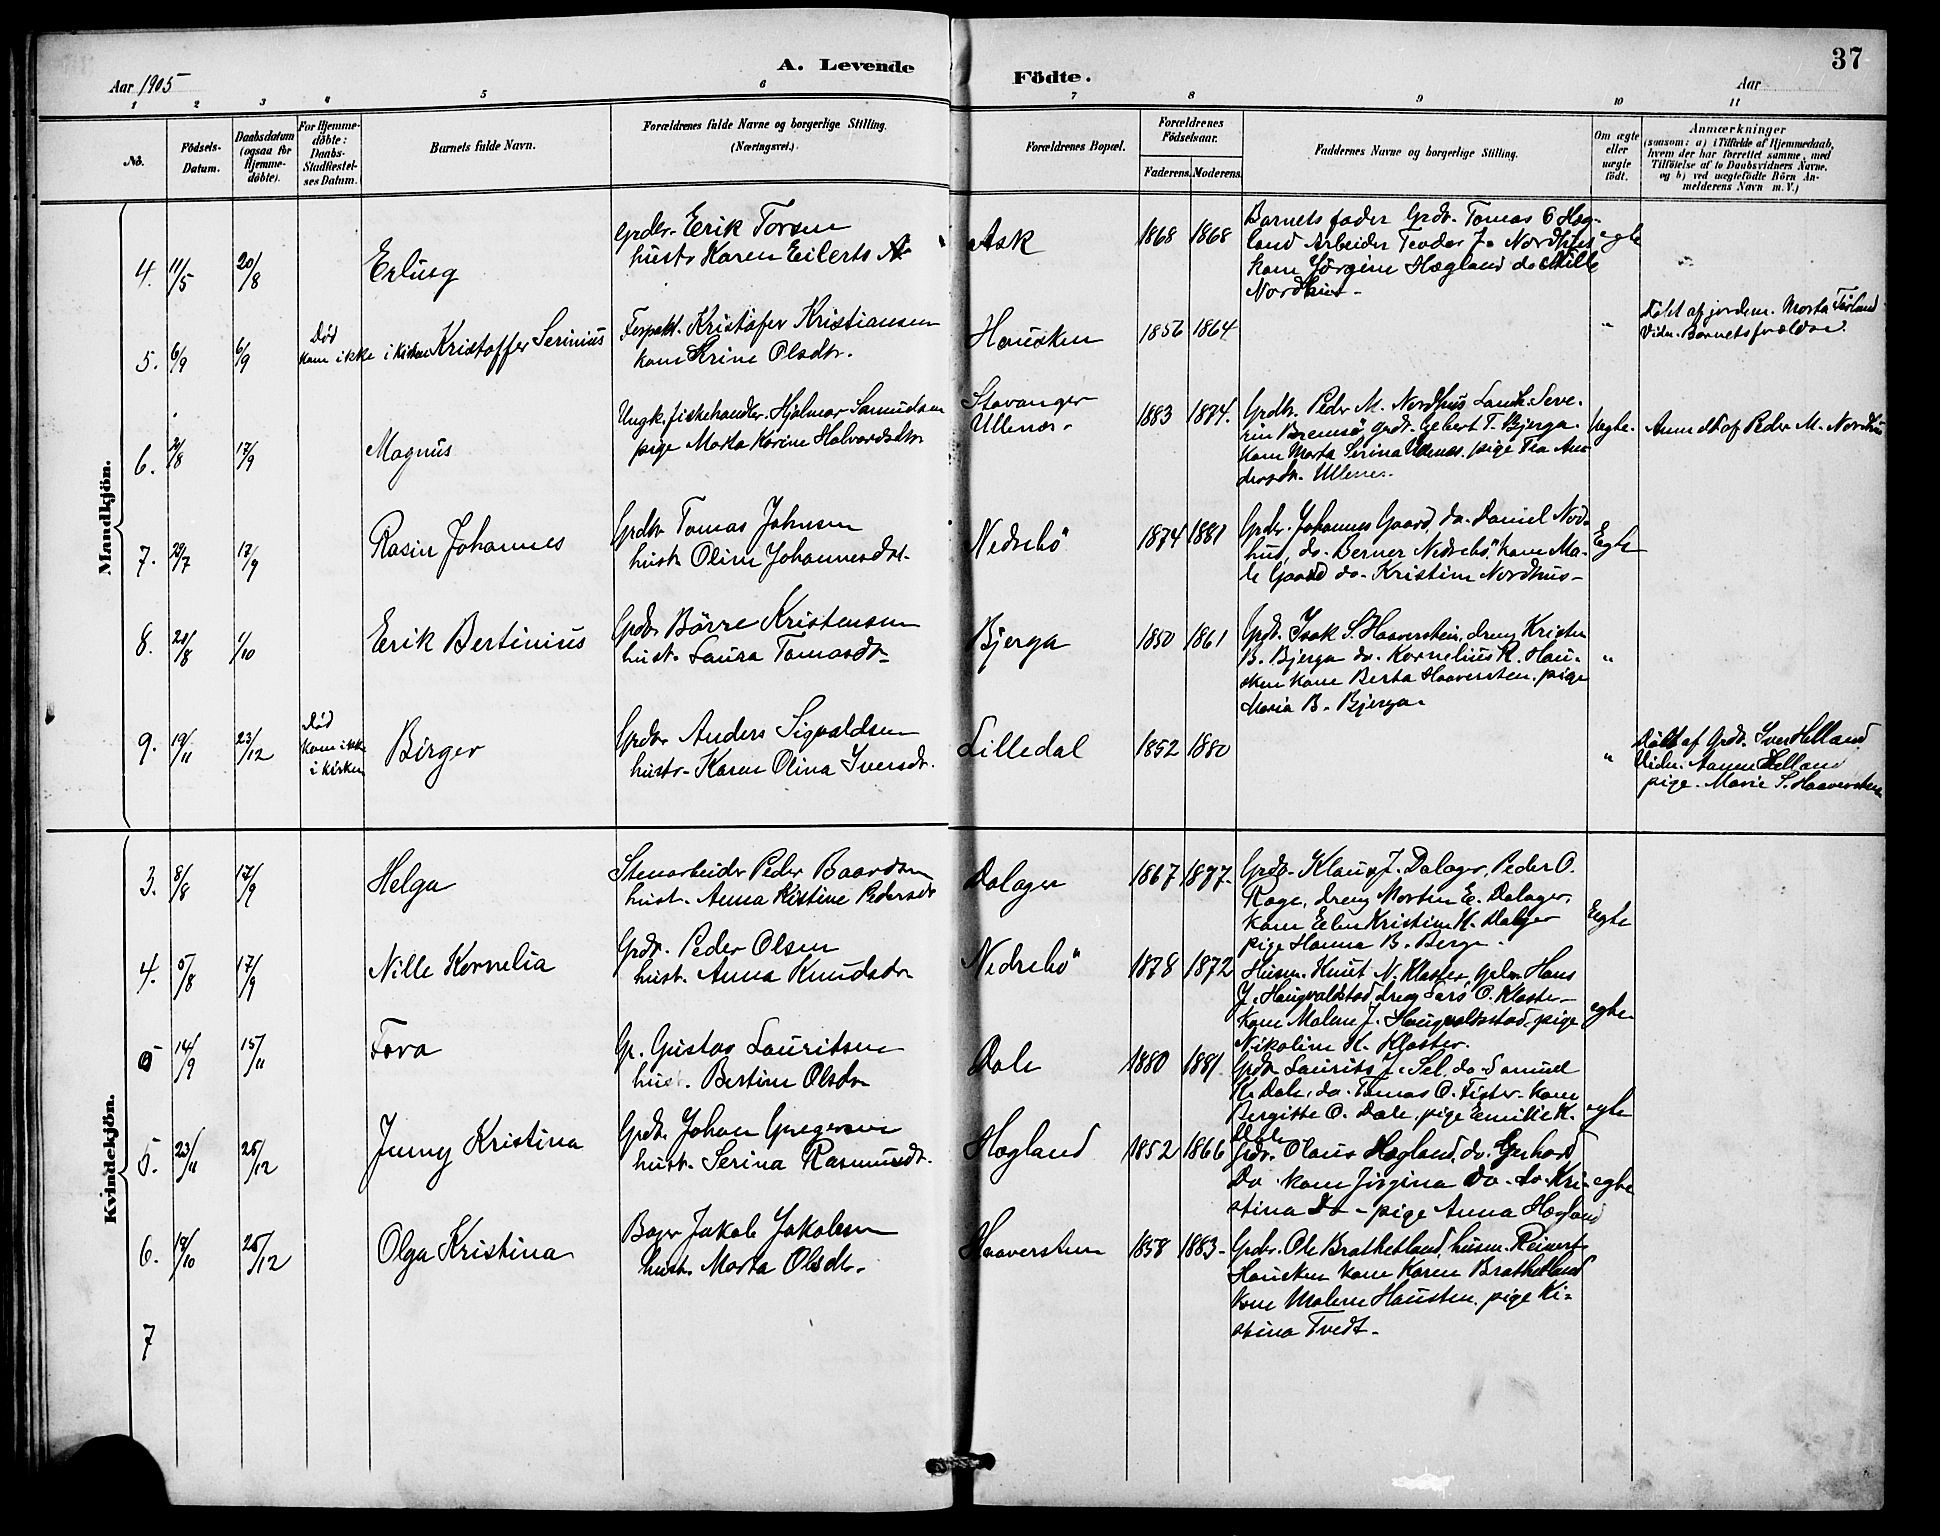 37
Aar 1905
A. Levende
Födte.
Aar
1 2 3 4 5 6 7 8 9 10 11
No.
Födsels-
Datum.
Daabsdatum
(ogsaa for
Hjemme-
döbte).
For Hjemme-
döbte:
Daabs-
Stadfæstel-
ses Datum.
Barnets fulde Navn.
Forældrenes fulde Navne og borgerlige Stilling.
(Næringsvei.)
Forældrenes Bopæl.
Forældrenes
Födselsaar.
Faderens. Moderens.
Faddernes Navne og borgerlige Stilling.
Om ægte
eller
uægte
födt.
Anmærkninger
(saasom: a) i Tilfælde af Hjemmedaab,
hvem der har forrettet samme, med
Tilföielse af to Daabsvidners Navne,
og b) ved uægtefödte Börn An-
melderens Navn m. V.)
Mandkjön.
4. 11/5 20/8
Erling
Grdbr. Eerik Torsen
hustr. Karen Eilerts
Ask
1868 1868
Barnets fader Grdb. Tomas Hæg-
land Arbeider Teodor J. Nordhus
kone Jörgine Hægland do Mille
Nordhus -
egte
5. 6/9 6/9
Död
kom ikke i kirken
Kristoffer Serinius
Kristofer Kristiansen
kone Serine Olsdtr.
Hausken
1856 1864
"
Döbt af jordem. Marta Förland
Vidn. Barnets forældre
6. 17/9
Magnus
Ungk. fiskehandler. Hjalmar Samuelsen
pige Marta Karine Halvardsdtr
Stavanger
Ullenes.
1883 1874.
Grdbr. Peder M. Nordhus Landh. Seve-
rin Bremsö grdb. Gebert T. Bjerga.
kone Marta Serina Ullenes. pige Tea An-
dersdtr. Ullenes.
Uegte.
Anmeldt af Peder M. Nordhus
7. 29/7 17/9
Rasin Johannes
Grdbr. Tomas Johnsen
hustr. Oline Johannesdtr.
Nedrebö
1874 1881
Grdbr. Johannes Gaard, do. Daniel Nord-
hus, do. Berner Nedrebö, kone Ma-
le Gaard do. Kristine Nordhus -
Eegte
8. 20/8 1/10
Eerik Bertinius
Grdbr Börre Kristensen
hust. Laura Tomasdtr.
Bjerga
1850 1861
Grdb. Isak S. Haaverstein, dreng Kristen
B. Bjerga do. Kornelius R. Hau-
sken kone Berta Haaverstein, pige
Maria B. Bjerga.
"
9. 19/11 23/12
Död
kom ikke
i kirken
Birger
Grdbr Anders Sigvaldsen
hustr. Karen Olina Iversdtr.
Lilledal
1852 1880
"
Döbt af Grdb. Iver Helland
Vidn. Helland
pige. Marie S. Haaverstein
Kvindekjön.
3. 8/8 17/9
Helga
Stenarbeider Peder Baardsen
hust. Anna Kistine Pedersdtr
Dalager
1867 1877.
Grdbr. Klaus J. Dalager, Peder O.
Rage, dreng Morten E. Dalager,
kone Elen Kristine H. Dalager
pige Hanna B. Berge.
Eegte
4. 5/8 17/9
Nille Kornelia
Grdbr. Peder Olsen
hust. Anna Knudsdtr
Nedrebö
1878 1872
Husm. Knut N. Kloster, Hans
J. Haugvaldstad, dreng Lars O. Kloster
kone Malene J. Haugvaldstad pige
Nikoline K. Kloster.
egte
5 14/9 15/11
Tova
Gr. Gustav Lauritsen
hust. Bertine Olsdtr
Dale
1880 1881.
Grdbr Laurits J. Sel, do Samuel
K. Dale, do. Tomas O. Fister. kone
Bergitte O. Dale, pige Emilie K.
Dale
egte
5. 23/11 25/12
Jenny Kristina
Grdbr. Johan Gregersen
hust. Serina Rasmusdtr.
Hægland
1852 1866
Grdbr. Olaus Hægland, do. Gerhard
Do kone Jörgina Do - do. Kri-
stina Do - pige Anna Hægland
egte
6. 18/10 25/12
Olga Kristina
Bager Jakob Jakobsen
hust. Marta Olsdtr.
Haaverstein
1858 1883 -
Grdbr. Ole Brathetland, husm. Reinert
Hausken kone Karen Brathetland
kone Malene Hausken, pige Ki-
stina Tvedt -
7